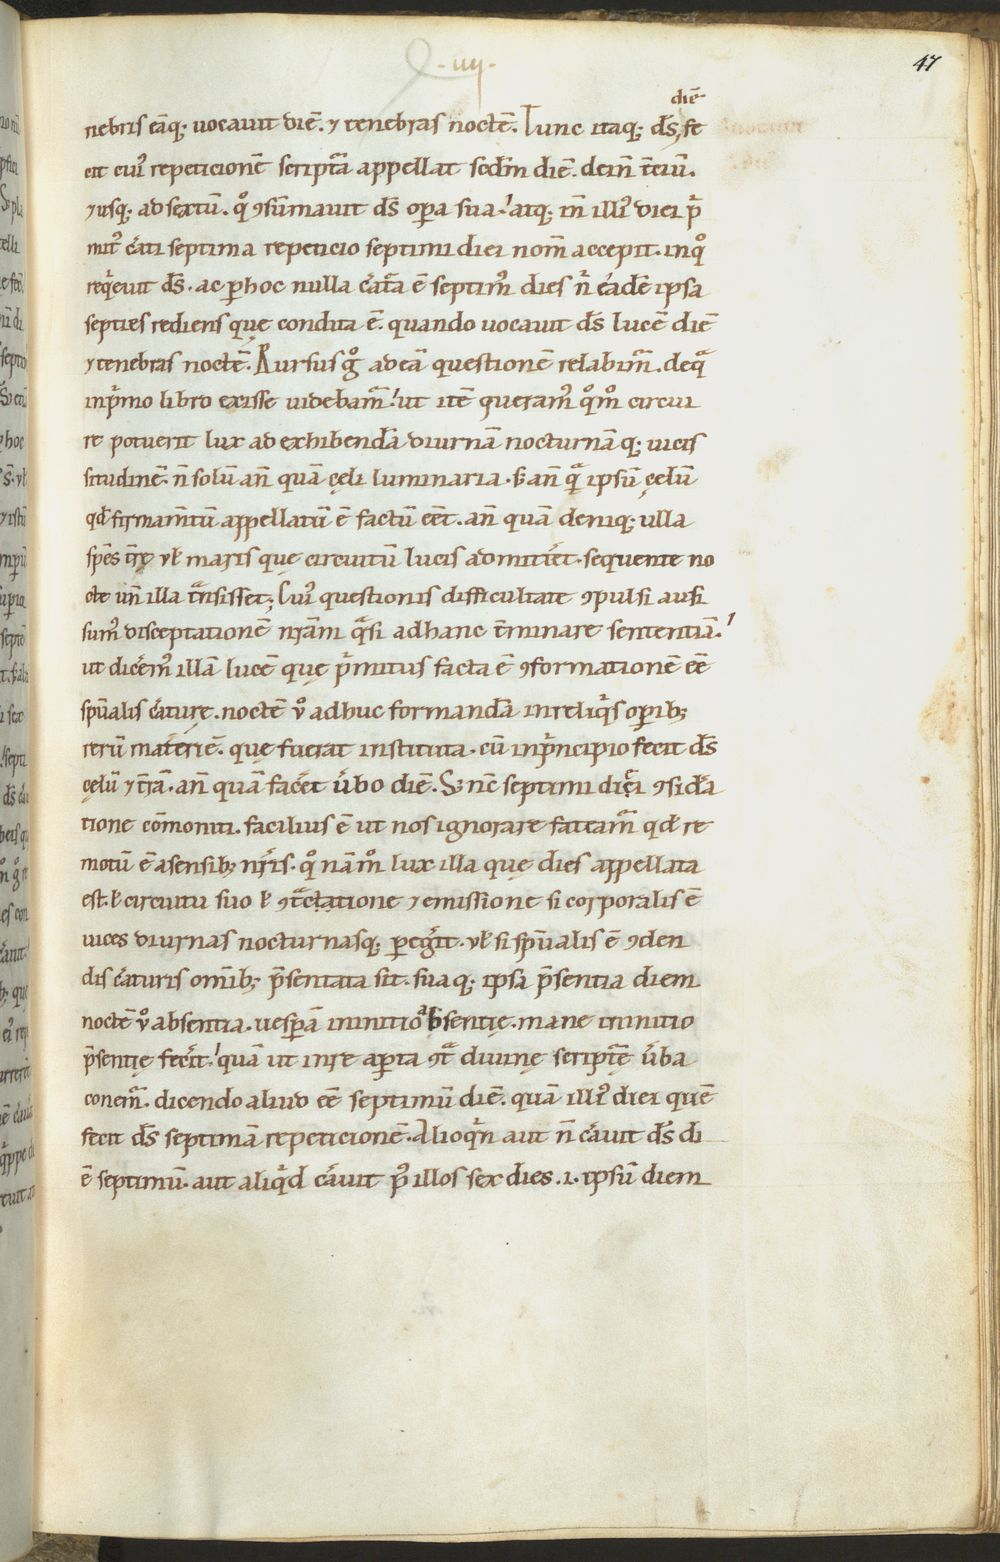 ·iiij·
47
diē
nebris eāq; uocauit diē. ⁊ tenebras noctē. Tunc itaq; d̄s, fe
cit cui᷒ repeticionē scriptā appellat sec̄dm diē. dein̄ t̄ciū.
⁊ usq; ad sextū. qͦ ꝯsūmauit d̄s oꝑa sua. atq; in̄ illi᷒ diei pͥ
mit᷒ c̄ati septima repeticio septimi diei nom̄ accepit. inqͦ
reqͥeuit d̄s. ac ꝑhoc nulla c̄at̄a ē septim᷒ dies nͥ ēadē ipsa
septies rediens quę condita ē. quando uocauit d̄s lucē diē
⁊ tenebras noctē. Rursus gͦ adeā questionē relabim̄. deqᷓ
inpͥmo libro exisse uidebam̄. ut itē queram᷒ qͦmͦ circui
re potuerit lux ad exhibendā diurnā nocturnāq; uicis
situdinē. n̄ solū an̄ quā cęli luminaria. s; an̄ qᷓ ipsū cęlū
qd̄ firmam̄tū appellatū ē factū eēt. an̄ quā deniq; ulla
sp̄es t̄rę ul̄ maris que circuitū lucis admitt̄et. sequente no
cte un̄ illa t̄nsisset; Cui᷒ questionis difficultate ꝯpulsi ausi
sum᷒ disceptationē nr̄am qᷓsi adhanc t̄minare sententiā.
ut dic̄em᷒ illā lucē quę pͥmitus facta ē ꝯformationē eē
sp̄ualis c̄aturę. noctē ūͦ adhuc formandā inreliqͥs oꝑib;
rerū materiē. quę fuerat instituta. cū inpͥncipio fecit d̄s
cęlū ⁊ t̄rā. an̄ quā fac̄et ūbo diē. S; nc̄ septimi diei ꝯsid̄a
tione cōmoniti. facilius ē ut nos ignorare fateam̄ qd̄ re
motū ē asensib; nr̄is. qͦ nāmͦ lux illa quę dies appellata
est. ł circuitu suo ł ꝯtᷓctatione ⁊ emissione si corporalis ē
uices diurnas nocturnasq; ꝑeḡit. ul̄ si sp̄ualis ē ꝯden
dis c̄aturis om̄ib; p̄sentata sit. suaq; ipsa p̄sentia diem
noctē ūͦ absentia. uesꝑā ininitio absentię. mane ininitio
p̄sentię fec̄it. quā ut inre aꝑta ꝯtᷓ diuinę scriptę̄ ūba
conem̄. dicendo aliud eē septimū diē. quā illi᷒ diei quē
fecit d̄s septimā repeticionē. Alioqͥn aut n̄ c̄auit d̄s di
ē septimū. aut aliqͥd c̄auit p᷒ illos sex dies .i. ipsū diem